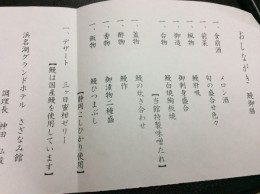 おしながき　鰻御膳
一、食前酒　メロン酒
一、前菜　旬の盛合せ色々
一、風物　鰻肝吸
一、御造　御刺身盛合
一、台物　鰻白焼陶板焼
【当館特製味噌だれ】
一、蓋物　鰻の炊き合わせ
一、酢物　鰻作
一、香物　御漬物二種盛
一、飯物　鰻ひつまぶし
【静岡こしひかり使用】
一、デザート　三ヶ日蜜柑ゼリー
【鰻は国産鰻を使用しています】
浜名湖グランドホテル　さざなみ館
調理長　神田